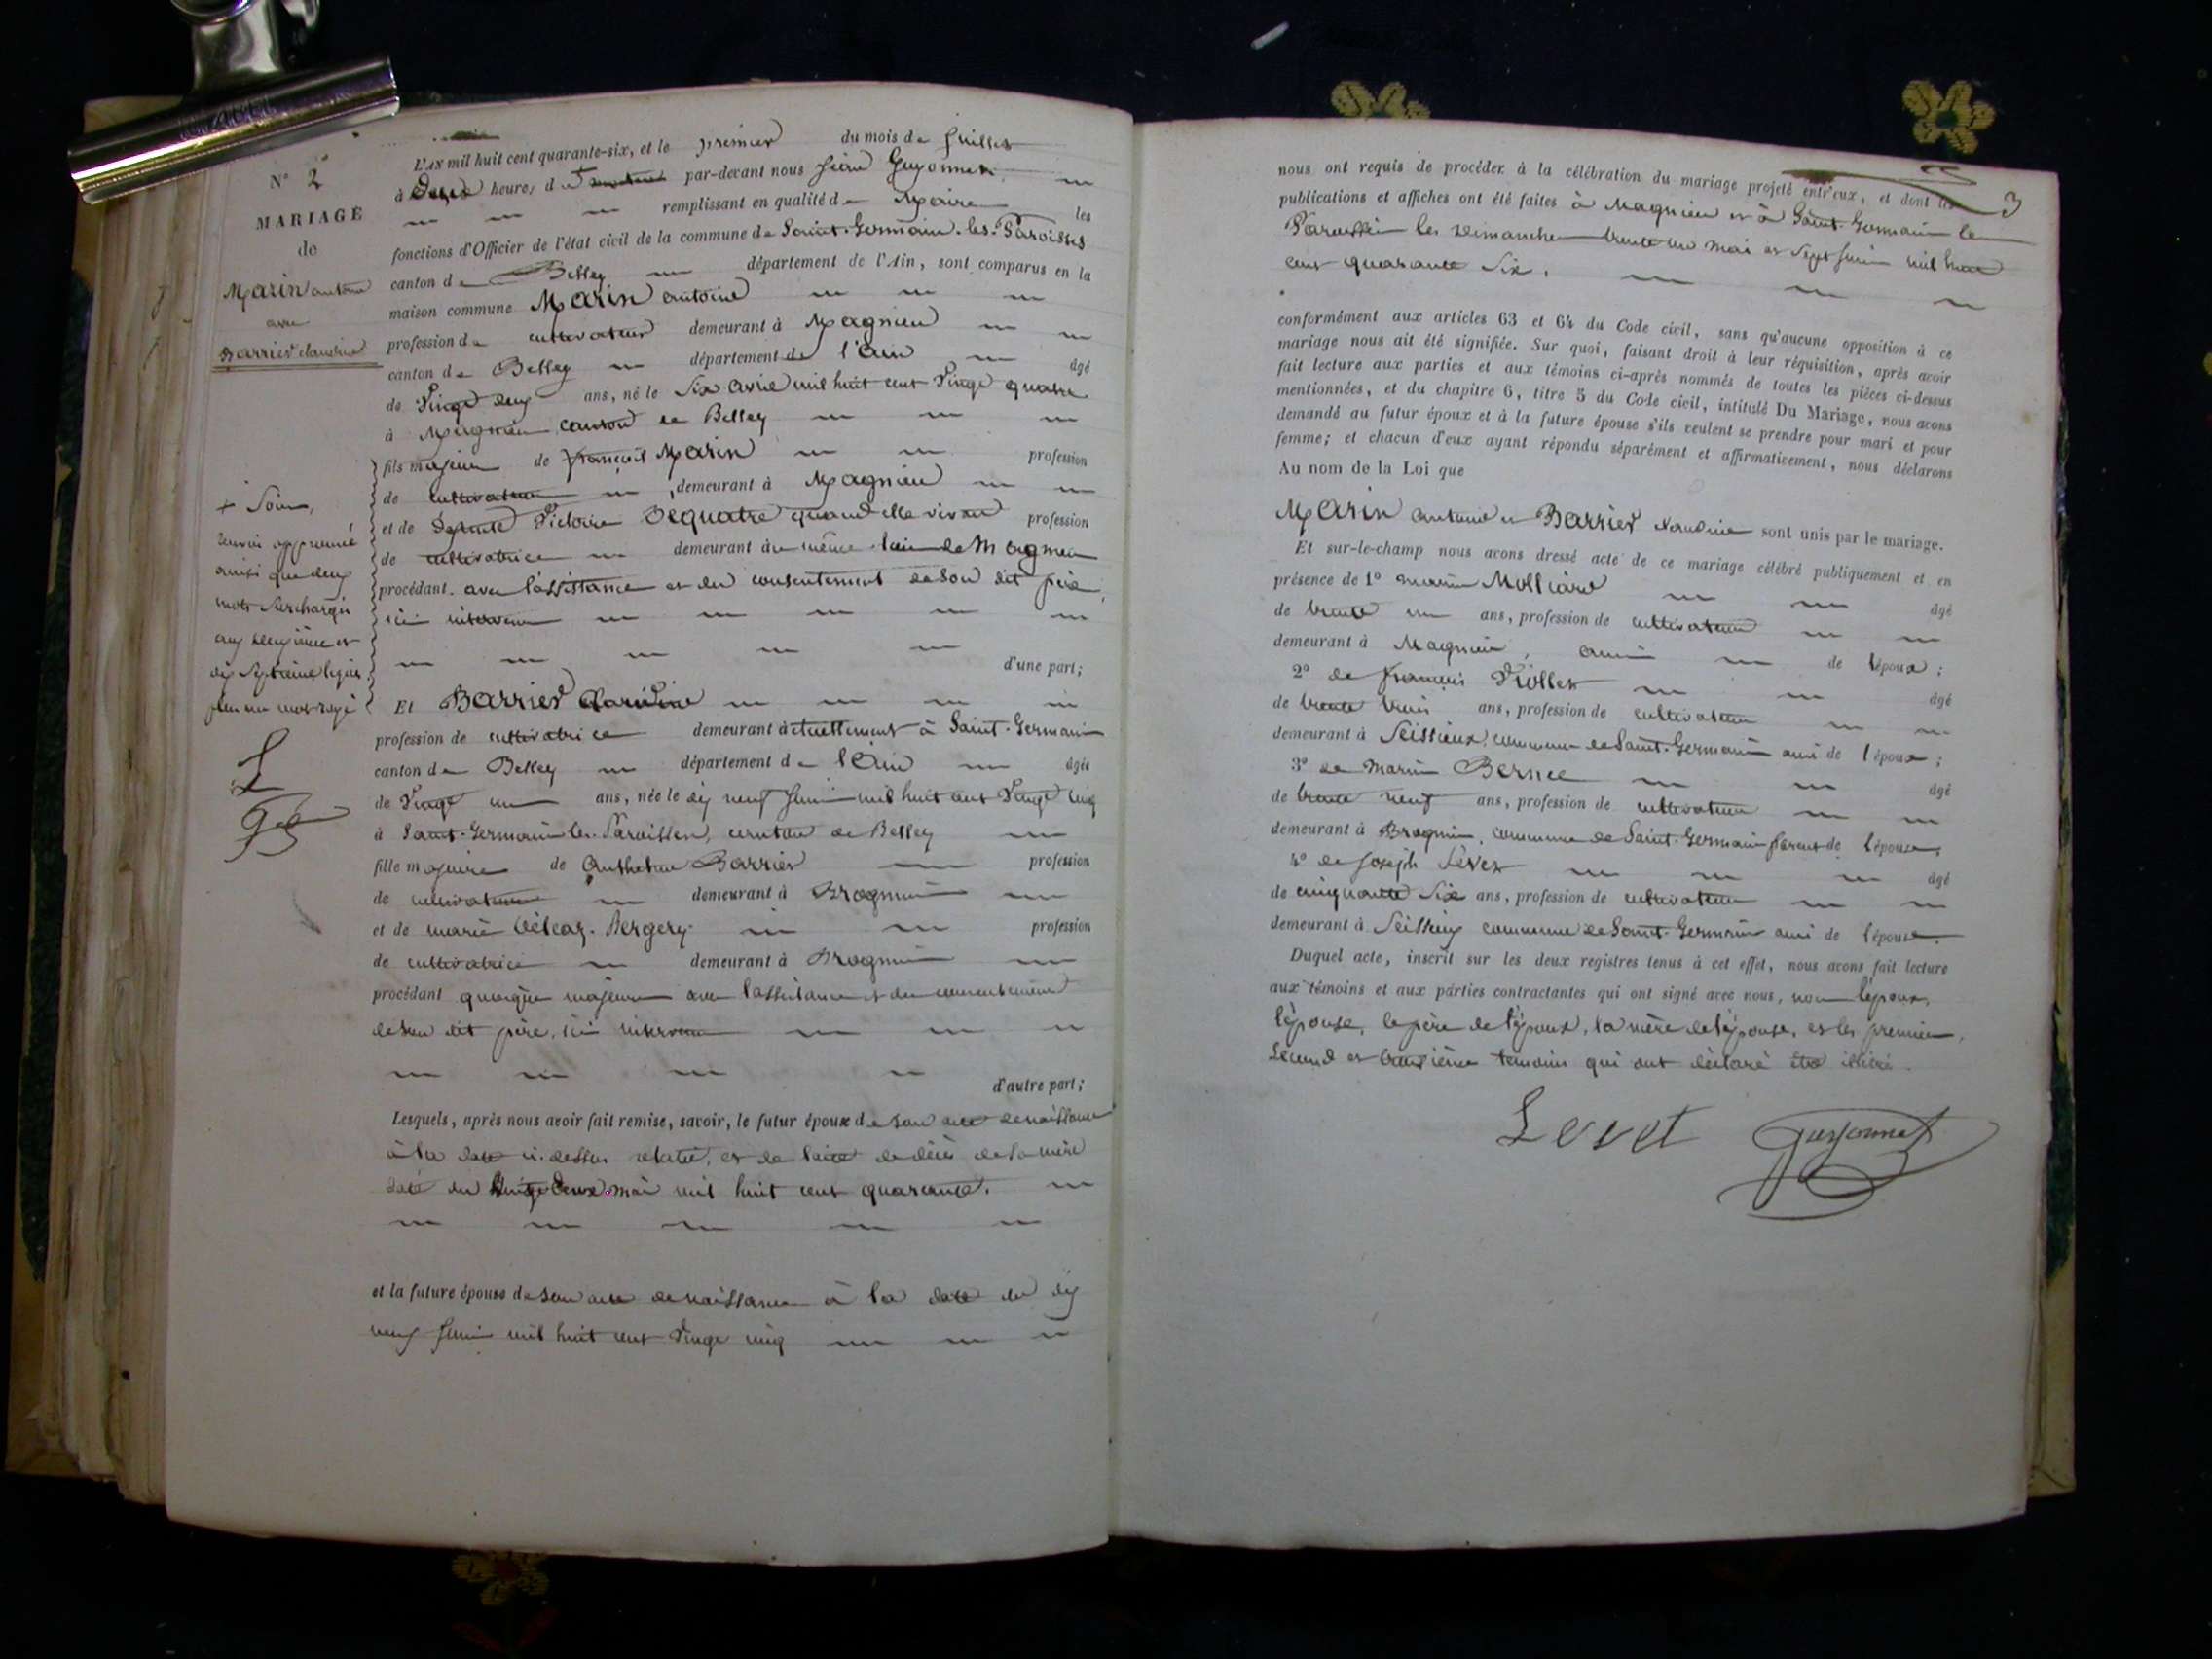 L'AN mil huit cent quarante-six, et le premier du mois de juillet
N° 2
MARIAGE
de
Marin antoine
avec
Barrier claudine
à deux heures du + par-devant nous Guyonnet
remplissant en qualité de Maire les
fonctions d'Officier de l'état civil de la commune de Saint-Germain-les-Paroisses
canton de Belley département de l'Ain, sont comparus en la
maison commune Marin antoine
profession de cultivateur demeurant à Magnieu
canton de Belley département de l'Ain âgé
de Vingt deux ans, né le Six avril mil huit cent Vingt quatre
à Magnieu canton de Belley
fils majeur de françois Marin profession
de cultivateur demeurant à Magnieu
et de défunte Victoire Dequatre quand elle vivait profession
de cultivatrice demeurant au même lieu de Magnieu
procédant avec l'assistance et du consentement de son dit père,
ici intervenu
d'une part;
+ Soir,
renvoi approuvé
ainsi que deux
mots surchargés
aux deuxième et
dix septième lignes,
plus un mot rayé
L
Et Barrier Claudine
profession de cultivatrice demeurant actuellement à Saint-Germain
canton de Belley département de l'Ain âgée
de Vingt un ans, née le dix neuf juin mil huit cent Vingt cinq
à Saint-Germain-les-Paroisses, canton de Belley
fille majeure de Anthelme Barrier profession
de cultivateur demeurant à Brognin
et de marie profession
de cultivatrice demeurant à Brognin
procédant quoique majeure avec l'assistance et du consentement
de son dit père, ici intervenu
d'autre part;
Lesquels, après nous avoir fait remise, savoir, le futur époux de son acte de naissance
à la date ci-dessus relatée, et de l'acte de décès de sa mère
daté du Vingt deux mai mil huit cent quarante.
et la future épouse de son acte de naissance à la date du dix
neuf juin mil huit cent Vingt cinq
3
nous ont requis de procéder à la célébration du mariage projeté entr'eux, et dont les
publications et affiches ont été faites à Magnieu et à Saint-Germain les
Paroisses les dimanches trente un mai et sept juin mil huit
cent quarante Six.
conformément aux articles 63 et 64 du Code civil, sans qu'aucune opposition à ce
mariage nous ait été signifiée. Sur quoi, faisant droit à leur réquisition, après avoir
fait lecture aux parties et aux témoins ci-après nommés de toutes les pièces ci-dessus
mentionnées, et du chapitre 6, titre 5 du Code civil, intitulé Du Mariage, nous avons
demandé au futur époux et à la future épouse s'ils veulent se prendre pour mari et pour
femme; et chacun d'eux ayant répondu séparément et affirmativement, nous déclarons
Au nom de la Loi que
Marin antoine et Barrier claudine sont unis par le mariage.
Et sur-le-champ nous avons dressé acte de ce mariage célébré publiquement et en
présence de 1° Molliard âgé
de trente un ans, profession de cultivateur
demeurant à Magnieu, ami de l'époux;
2° de françois Viollet âgé
de trente trois ans, profession de cultivateur
demeurant à Seissieux, commune de Saint-Germain ami de l'époux;
3° de Marin Bernee âgé
de trente neuf ans, profession de cultivateur
demeurant à Brognin, commune de Saint-Germain parent de l'épouse,
4° de Joseph Levet âgé
de cinquante Six ans, profession de cultivateur
demeurant à Seissieux commune de Saint-Germain ami de l'épouse.
Duquel acte, inscrit sur les deux registres tenus à cet effet, nous avons fait lecture
aux témoins et aux parties contractantes qui ont signé avec nous, non l'époux,
l'épouse, le père de l'époux, la mère de l'épouse, et les premier,
Second et troisième témoins qui ont déclaré être illitéré.
Levet Guyonnet